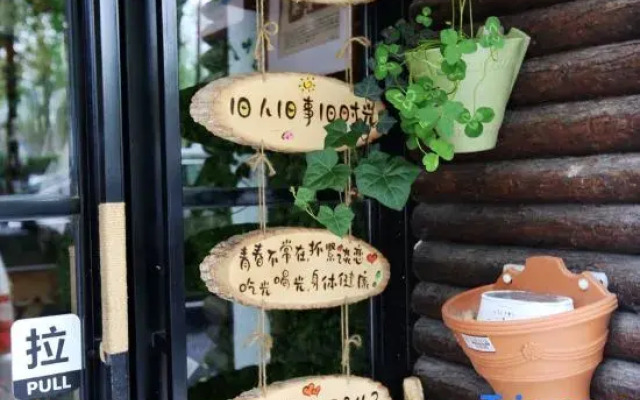 旧人旧事旧时光
青春不常在,抓紧谈恋爱
吃光喝光身体健康
拉
PULL